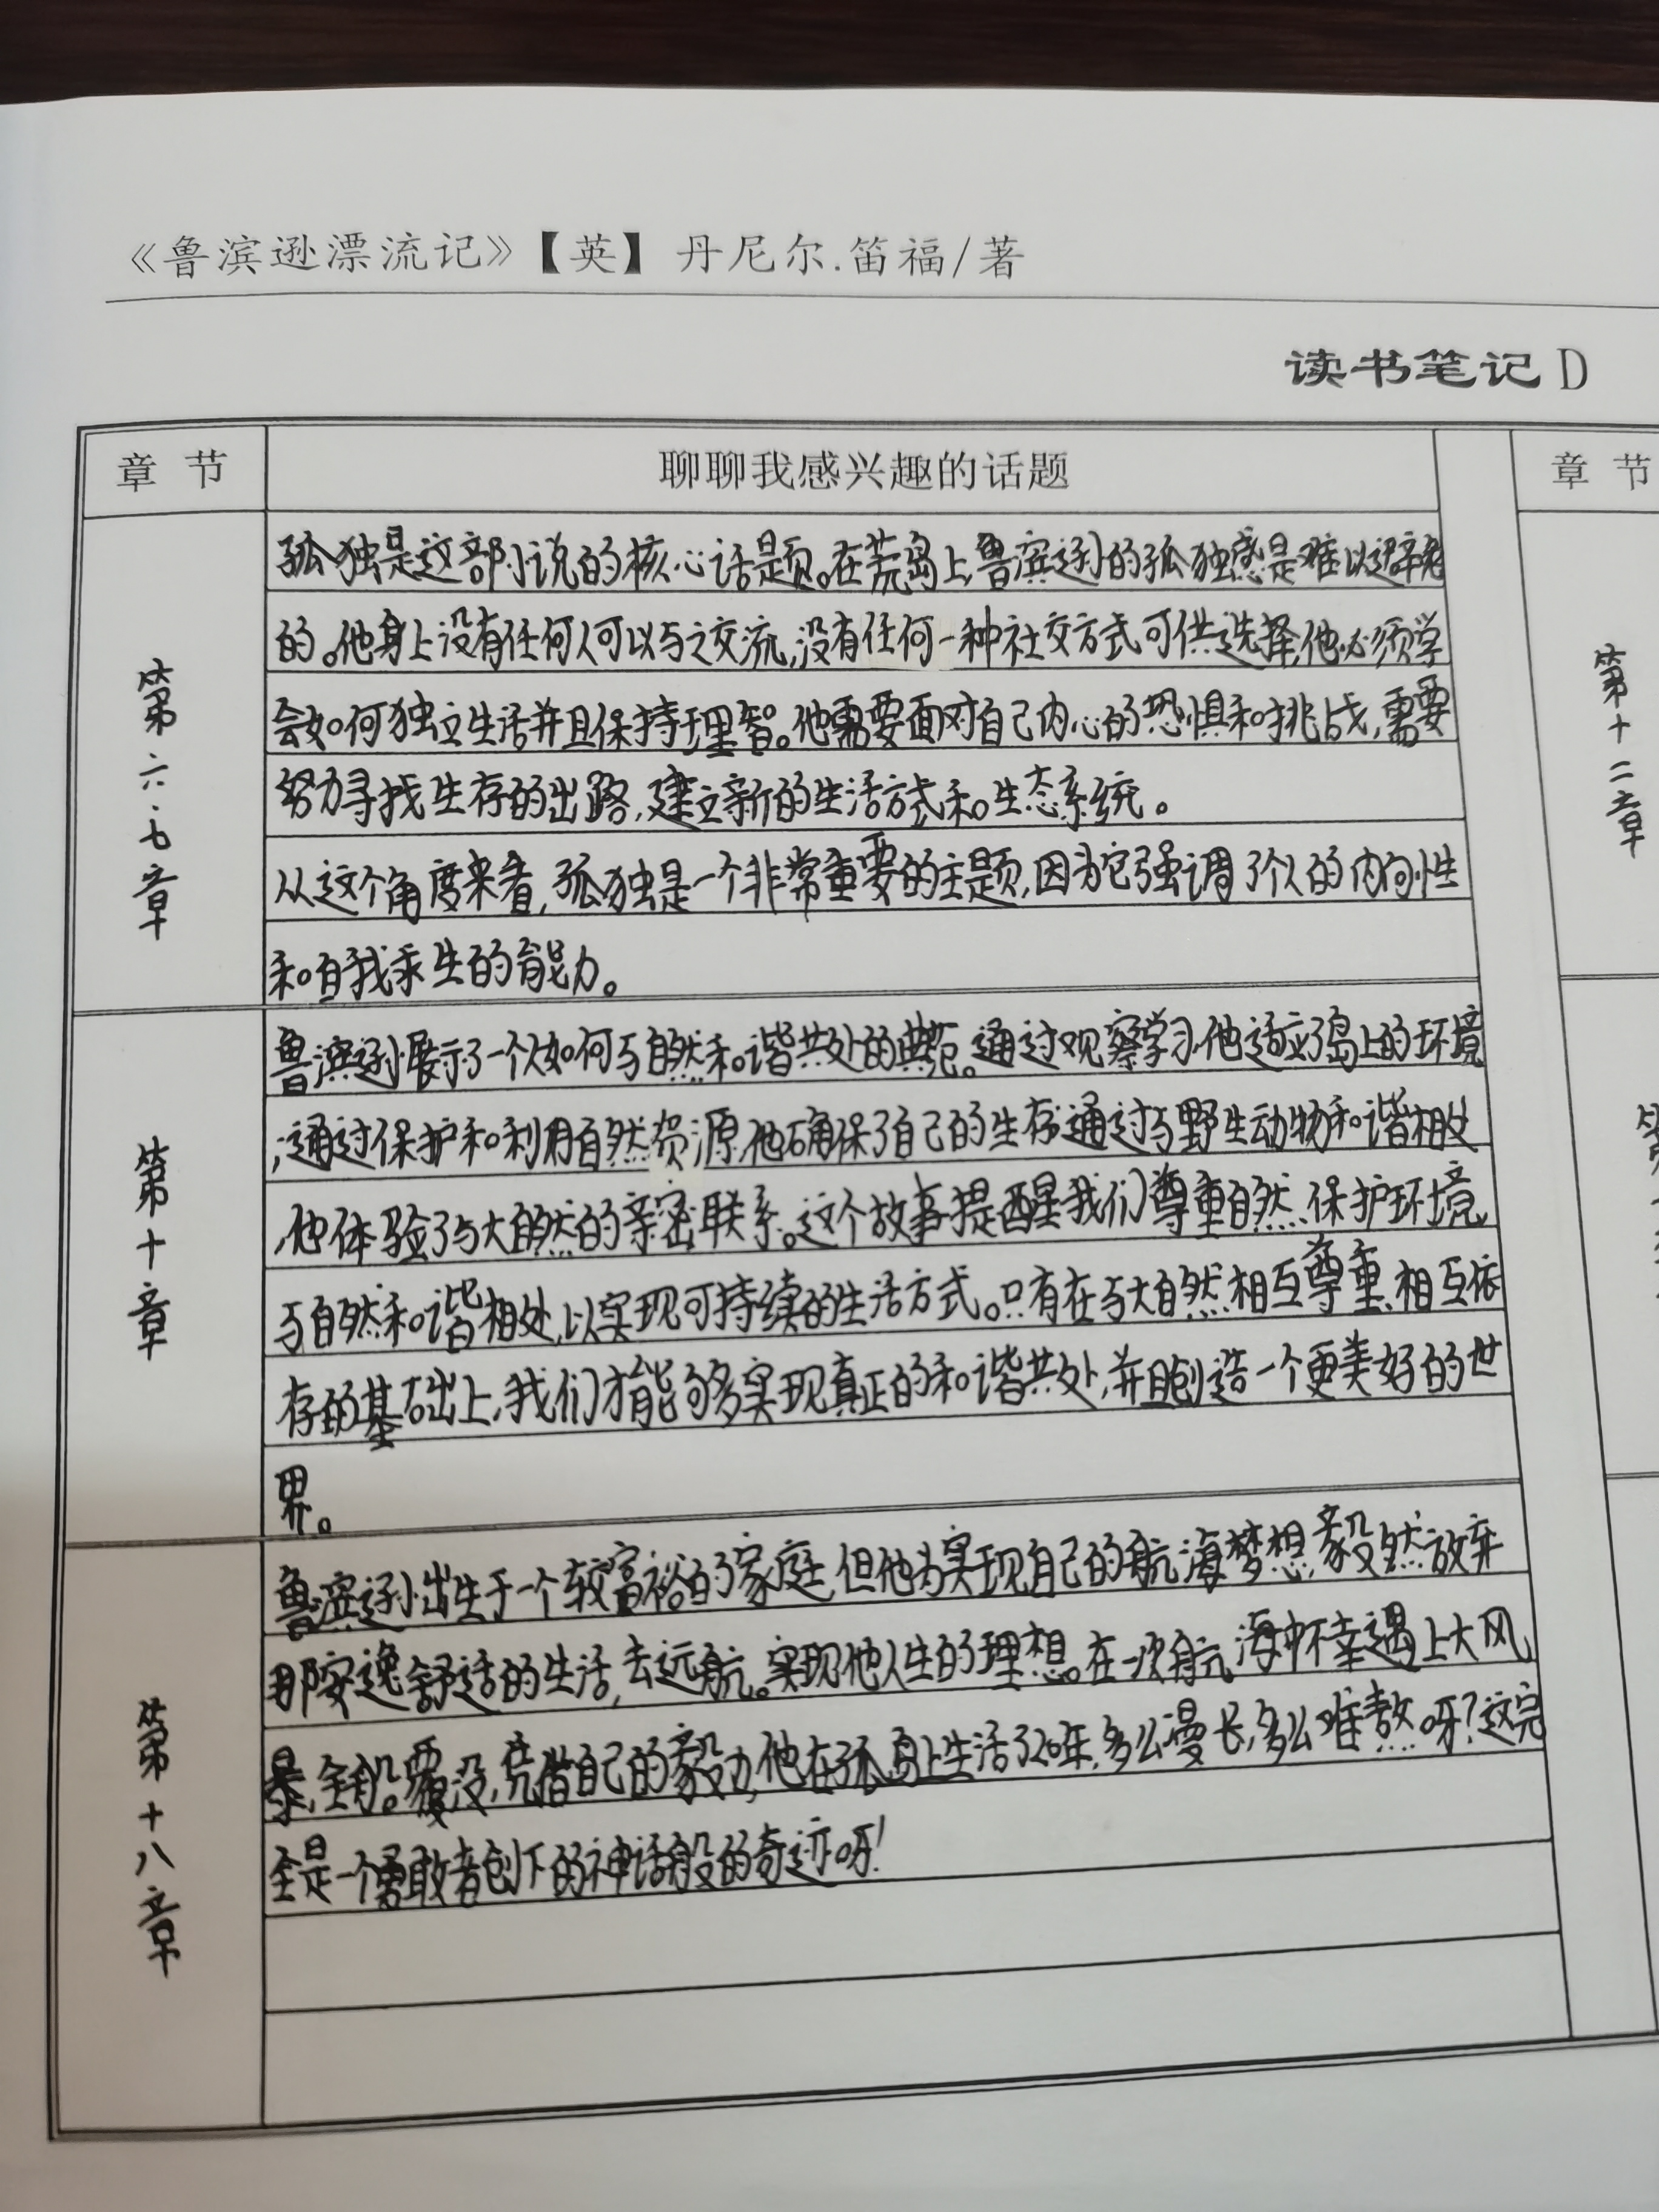 《鲁滨逊漂流记》【英】丹尼尔.笛福/著
读书笔记D
章节
聊聊我感兴趣的话题
章节
第六、七章
孤独是这部小说的核心话题。在荒岛上,鲁滨逊的孤独感是难以避免
的。他身上没有任何人可以与之交流,没有任何一种社交方式可供选择,他必须学
会如何独立生活并且保持理智。他需要面对自己内心的恐惧和挑战,需要
努力寻找生存的出路,建立新的生活方式和生态系统。
从这个角度来看,孤独是一个非常重要的主题,因为它强调了个人的内向性
和自我求生的能力。
第十章
鲁滨逊展示了一个人如何与自然和谐共处的典范。通过观察学习,他适应了岛上的环境
;通过保护和利用自然资源,他确保了自己的生存;通过与野生动物和谐相处
,他体验了与大自然的亲密联系。这个故事提醒我们尊重自然、保护环境,
与自然和谐相处,以实现可持续的生活方式。只有在与大自然相互尊重、相互依
存的基础上,我们才能够实现真正的和谐共处,并且创造一个更美好的世
界。
第十八章
鲁滨逊出生于一个较富裕的家庭,但他为实现自己的航海梦想,毅然放弃
那安逸舒适的生活,去远航。实现他人生的理想。在一次航海中不幸遇上大风
暴,全船。覆没,凭借自己的毅力,他在孤岛上生活了年,多么漫长,多么难熬呀?这完
全是一个勇敢者创下的神话般的奇迹呀!
第十二章